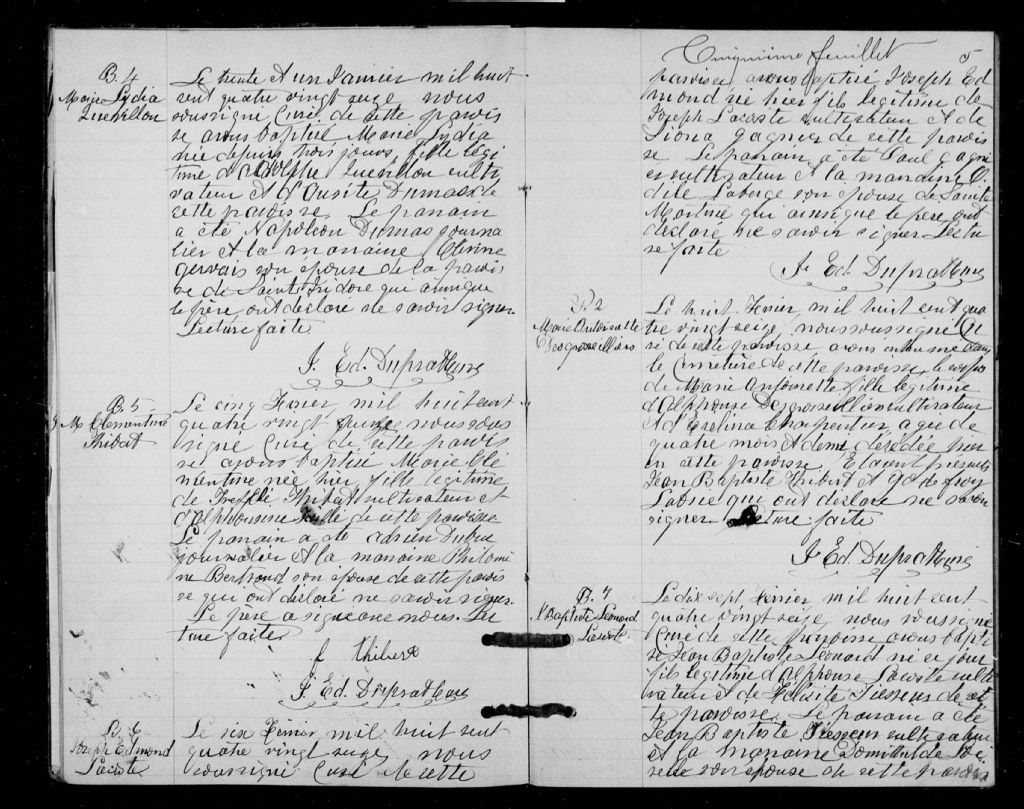 B. 4
Marie Lydia
Quevillon
Le trente et un Janvier mil huit
cent quatre vingt seize nous
soussigné Curé de cette parois
se avons baptisé Marie Lydia
née depuis trois jours, fille légi
time d'Adolphe Quevillon culti
vateur et d' Dumas de
cette paroisse. Le parrain
a été Napoléon Dumas journa
lier et la marraine
Gervais son épouse de la parois
se de Saint Isidore que ainsi que
le père ont déclaré ne savoir signer.
Lecture faite.
J. Ed. Duprat Ptre
B. 5
M Clementine
Thibat
Le cinq Fevrier mil huit cent
quatre vingt seize nous sous
signé Curé de cette parois
se avons baptisé Marie Clé
mentine née hier, fille légitime
de Trefflé Thibat cultivateur et
d'Alphonsine de cette paroisse
Le parrain a été Adrien
journalier et la marraine Philomè
ne Bertrand son épouse de cette parois
se qui ont déclaré ne savoir signer.
Le père a signé avec nous. Lec
ture faite.
J. Ed. Duprat Ptre
B. 6
Joseph Edmond
Lacoste
Le six Fevrier mil huit cent
quatre vingt seize nous
soussigné Curé de cette
Cinquième feuillet 5
paroisse, avons baptisé Joseph Ed
mond né hier fils légitime de
Joseph Lacoste cultivateur et de
Gagner de cette parois
se. Le parrain a été Paul Gagné
cultivateur et la marraine O
dile Laberge son épouse de Sainte
Martine qui ainsi que le père ont
déclaré ne savoir signer. Lectu
re faite
J. Ed. Duprat Ptre
S. 2
Marie Antoinette
Desgroseilliers
Le huit Fevrier mil huit cent qua
tre vingt seize, nous soussigné Cu
ré de cette paroisse, avons inhumé dans
le cimetière de cette paroisse, le corps
de Marie Antoinette fille légitime
d'Alphonse Desgroseilliers cultivateur
et d' Charpentier agée de
quatre mois et demi décédée hier
en cette paroisse. Etaient présents
Jean Baptiste et
qui ont déclaré ne savoir
signer. Lecture faite
J. Ed. Duprat Ptre
B. 7
J Baptiste Leonard
Lacoste
Le dix sept Fevrier mil huit cent
quatre vingt seize, nous soussigné
Curé de cette Paroisse avons bapti
sé Jean Baptiste Leonard né ce jour
fils légitime d'Alphonse Lacoste culti
vateur et de de cet
te paroisse. Le parrain a été
Jean Baptiste cultivateur
et la marraine Domithilde
son épouse de cette paroisse